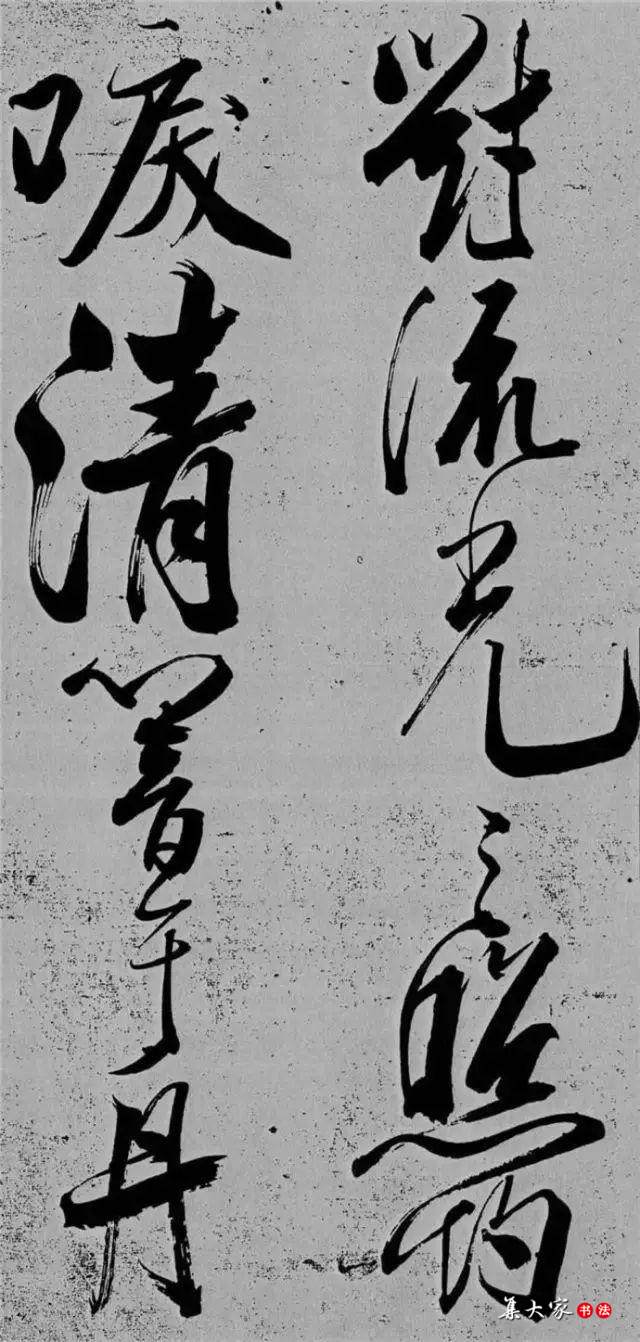 對流光之照灼
唳清響于丹
集大家 书法